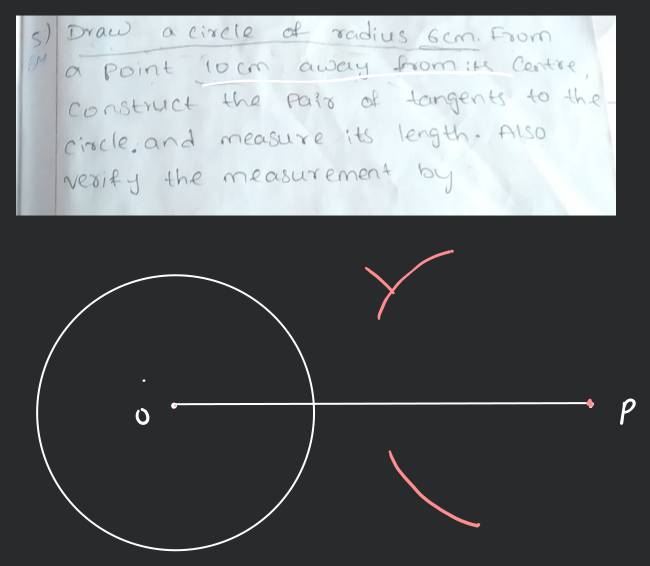 5) Draw a circle of radius 6cm. From
a point 10cm away from its Centre,
construct the pair of tangents to the
circle. and measure its length. Also
verify the measurement by
O P